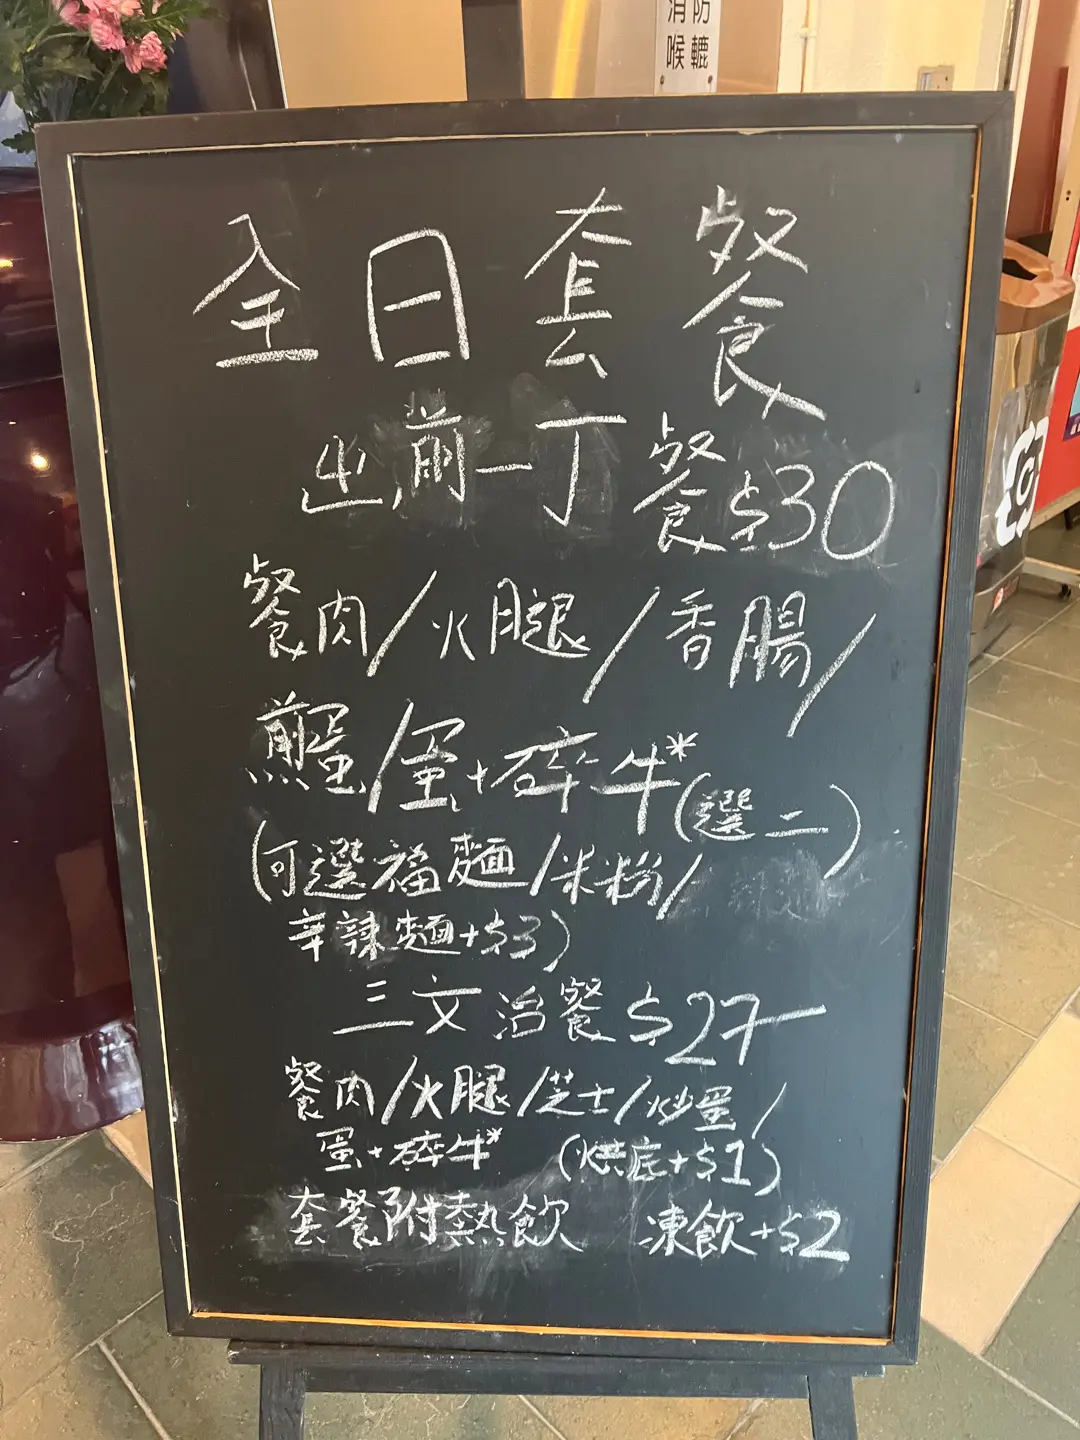 消防
喉轆
全日套餐
出前一丁餐$30
餐肉/火腿/香腸/
煎蛋/蛋+碎牛*(選二)
(可選福麵/米粉/
辛辣麵+$3)
三文治餐$27
餐肉/火腿/芝士/炒蛋/
蛋+碎牛* (烘底+$1)
套餐附熱飲 凍飲+$2